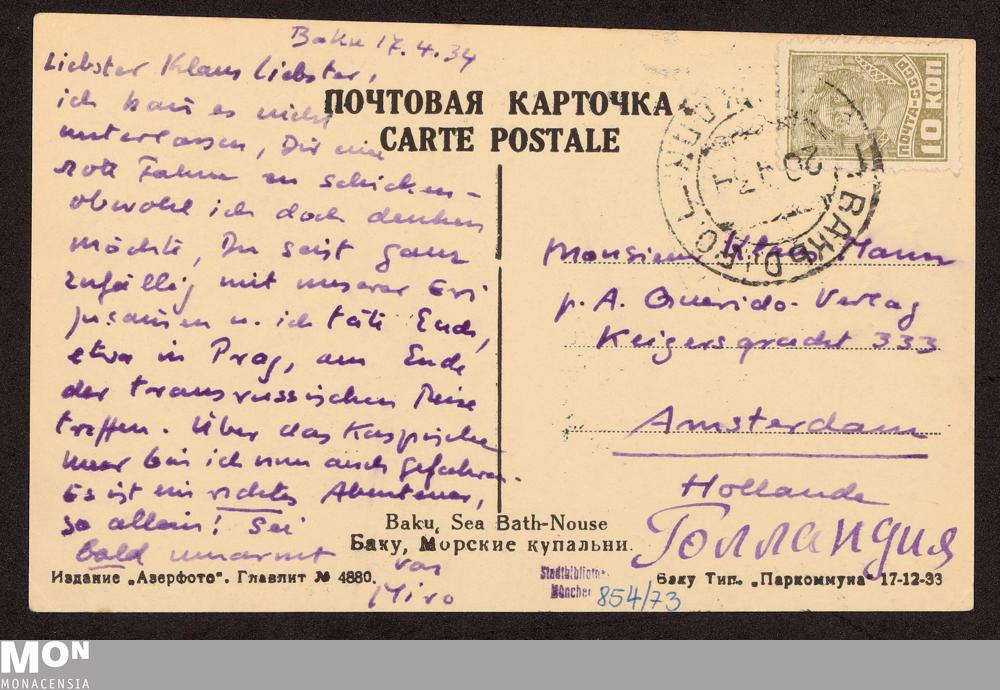 Baku 17.4.34
Liebster Klaus Liebster,
ich kann es nicht
unterlassen, Dir eine
rote Fahne zu schicken –
obwohl ich doch denken
möchte, Du seist ganz
zufällig mit unserer Eri
zusammen u. ich täte Euch,
etwa in Prag, am Ende
der transrussischen Reise
treffen. Über das Kaspische
Meer bin ich nun auch gefahren.
Es ist ein richtiges Abenteuer,
so allein! Sei
bald umarmt
von
Miro
ПОЧТОВАЯ КАРТОЧКА
CARTE POSTALE
ПОЧТА-СССР
10 КОП
20 4 34
Monsieur Klaus Mann
p. A. Querido-Verlag
Keizersgracht 333
Amsterdam
Hollande
Голландия
Baku, Sea Bath-Nouse
Баку, Морские купальни.
Издание „Азерфото“. Главлит № 4880.
Баку Тип. „Паркоммуна“ 17-12-33
Stadtbibliothek
München
854/73
MON
MONACENSIA